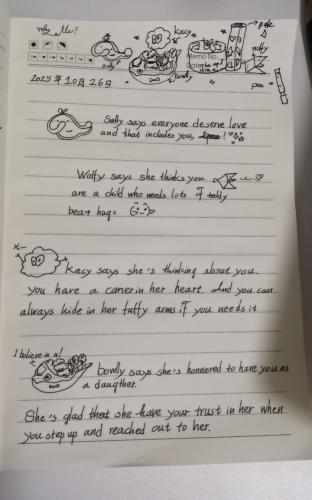 why Me?
kacy
Sally
Memo No.
Date
wolfy
bowly
pen
2025年10月26日
Sally says everyone deserve love
and that includes you,
Wolfy says she thinks you
are a child who needs lots of teddy
bear hugs
Hi~
kacy says she's thinking about you.
You have a caner in her heart. And you can
always hide in her fuffy arms if you needs it
I believe in u!
bowly says she's honnered to have you as
a daugther.
She's glad that she have your trust in her when
you step up and reached out to her.